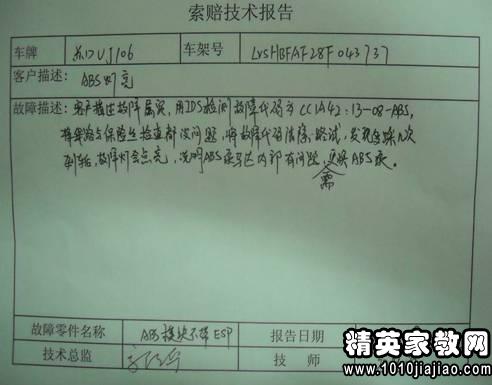 索赔技术报告
车牌 苏DVJ106 车架号 LVSHBFAF28F043737
客户描述: ABS灯亮
故障描述: 客户描述故障属实, 用IDS检测 故障代码为 CC1A42:13-08-ABS,
将线路与保险丝检查都没问题, 将故障代码清除. 路试, 发现连踩几次
刹车, 故障灯会点亮, 说明ABS泵马达内部有问题, 需更换ABS泵。
故障零件名称 ABS模块不带ESP 报告日期
技术总监 技 师
精英家教网
www.1010jiajiao.com